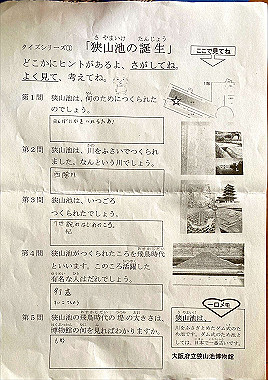 さやまいけ たんじょう
クイズシリーズ① 「狭山池の誕生」
ここで見てね
どこかにヒントがあるよ、さがしてね。
よく見て、考えてね。
第1問 狭山池は、何のためにつくられた
のでしょう。
第2問 狭山池は、川をふさいでつくられ
ました。なんという川でしょう。
西除川
第3問 狭山池は、いつごろ
つくられたでしょう。
第4問 狭山池がつくられたころを飛鳥時代
といいます。このころ活躍した
有名な人はだれでしょう。
第5問 狭山池の飛鳥時代の堤の大きさは、
博物館の何を見ればわかりますか。
一口メモ
狭山池は、
川をふさぎとめたダム式のた
め池です。ダム式のため池と
しては、日本で一番古いです。
大阪府立狭山池博物館